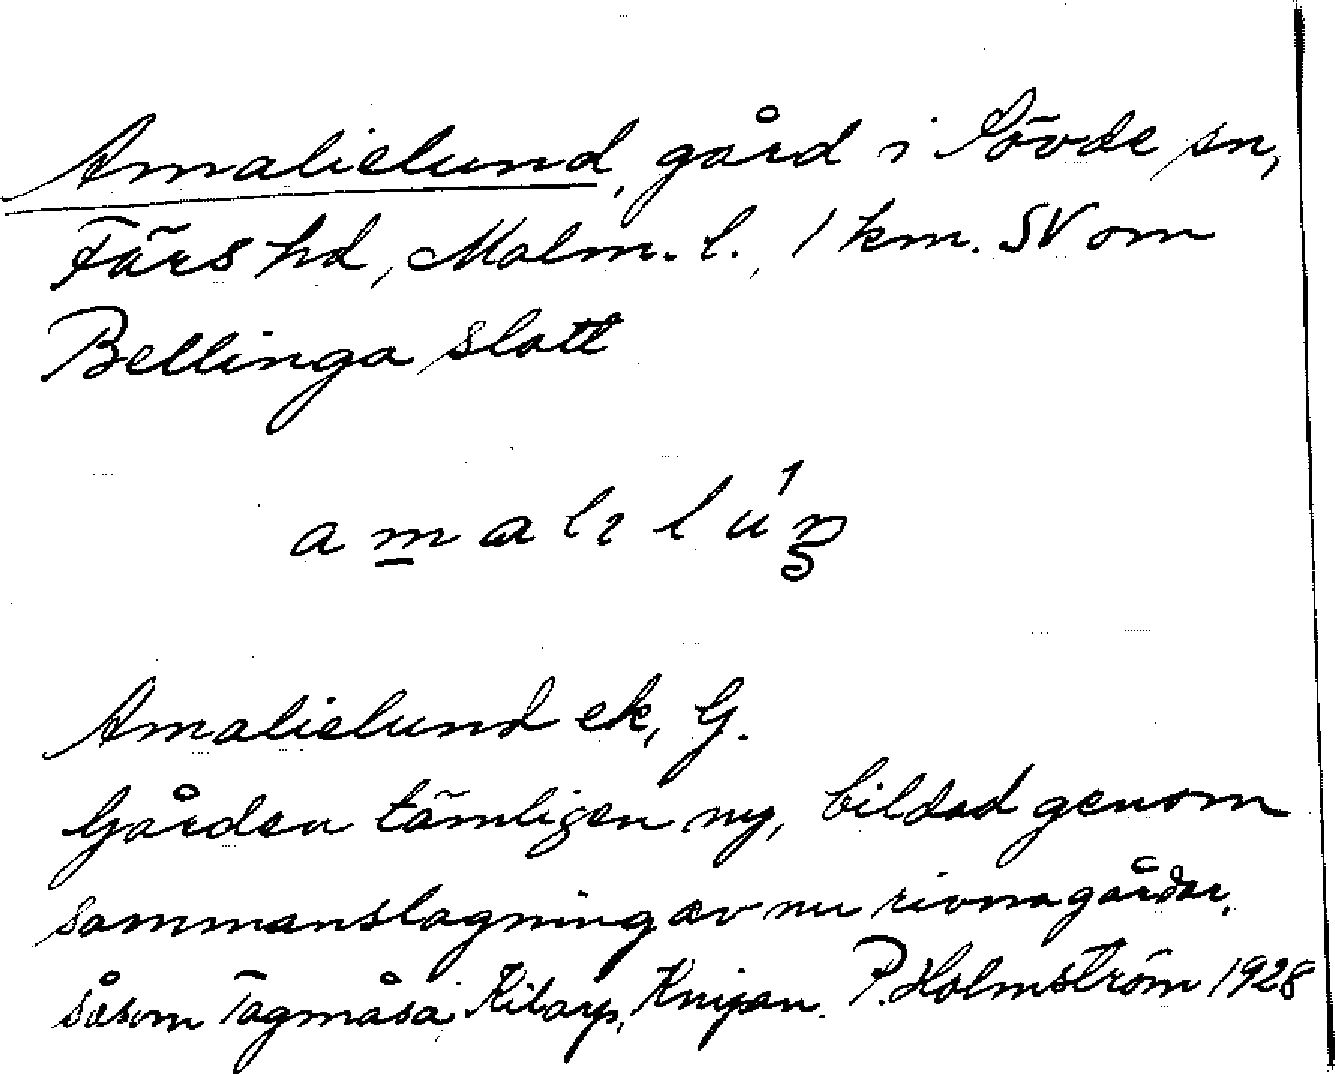 Amalielund, gård i Sövde sn,
Färs hd, Malm. l., 1 km. SV om
Bellinga slott
Amalielund ek, G.
Gården tämligen ny, bildad genom
sammanslagning av nu rivna gårdar,
såsom Tagmåsa, Kibarp, P. Holmström 1928